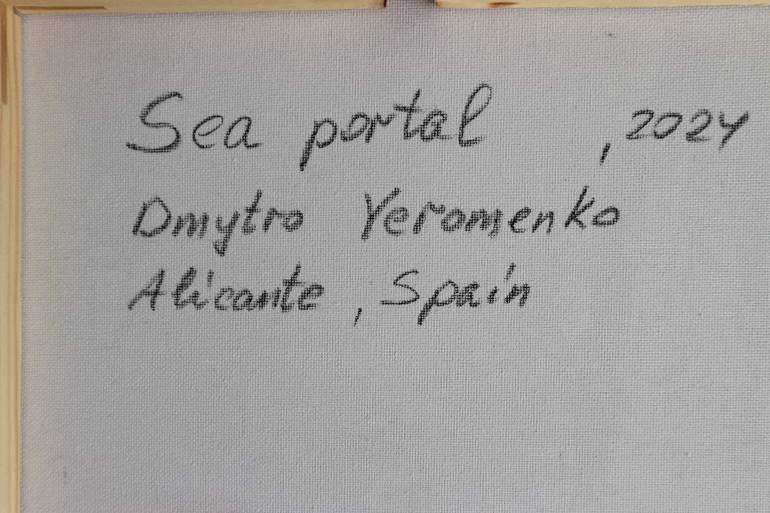 Sea portal , 2024
Dmytro Yeromenko
Alicante, Spain